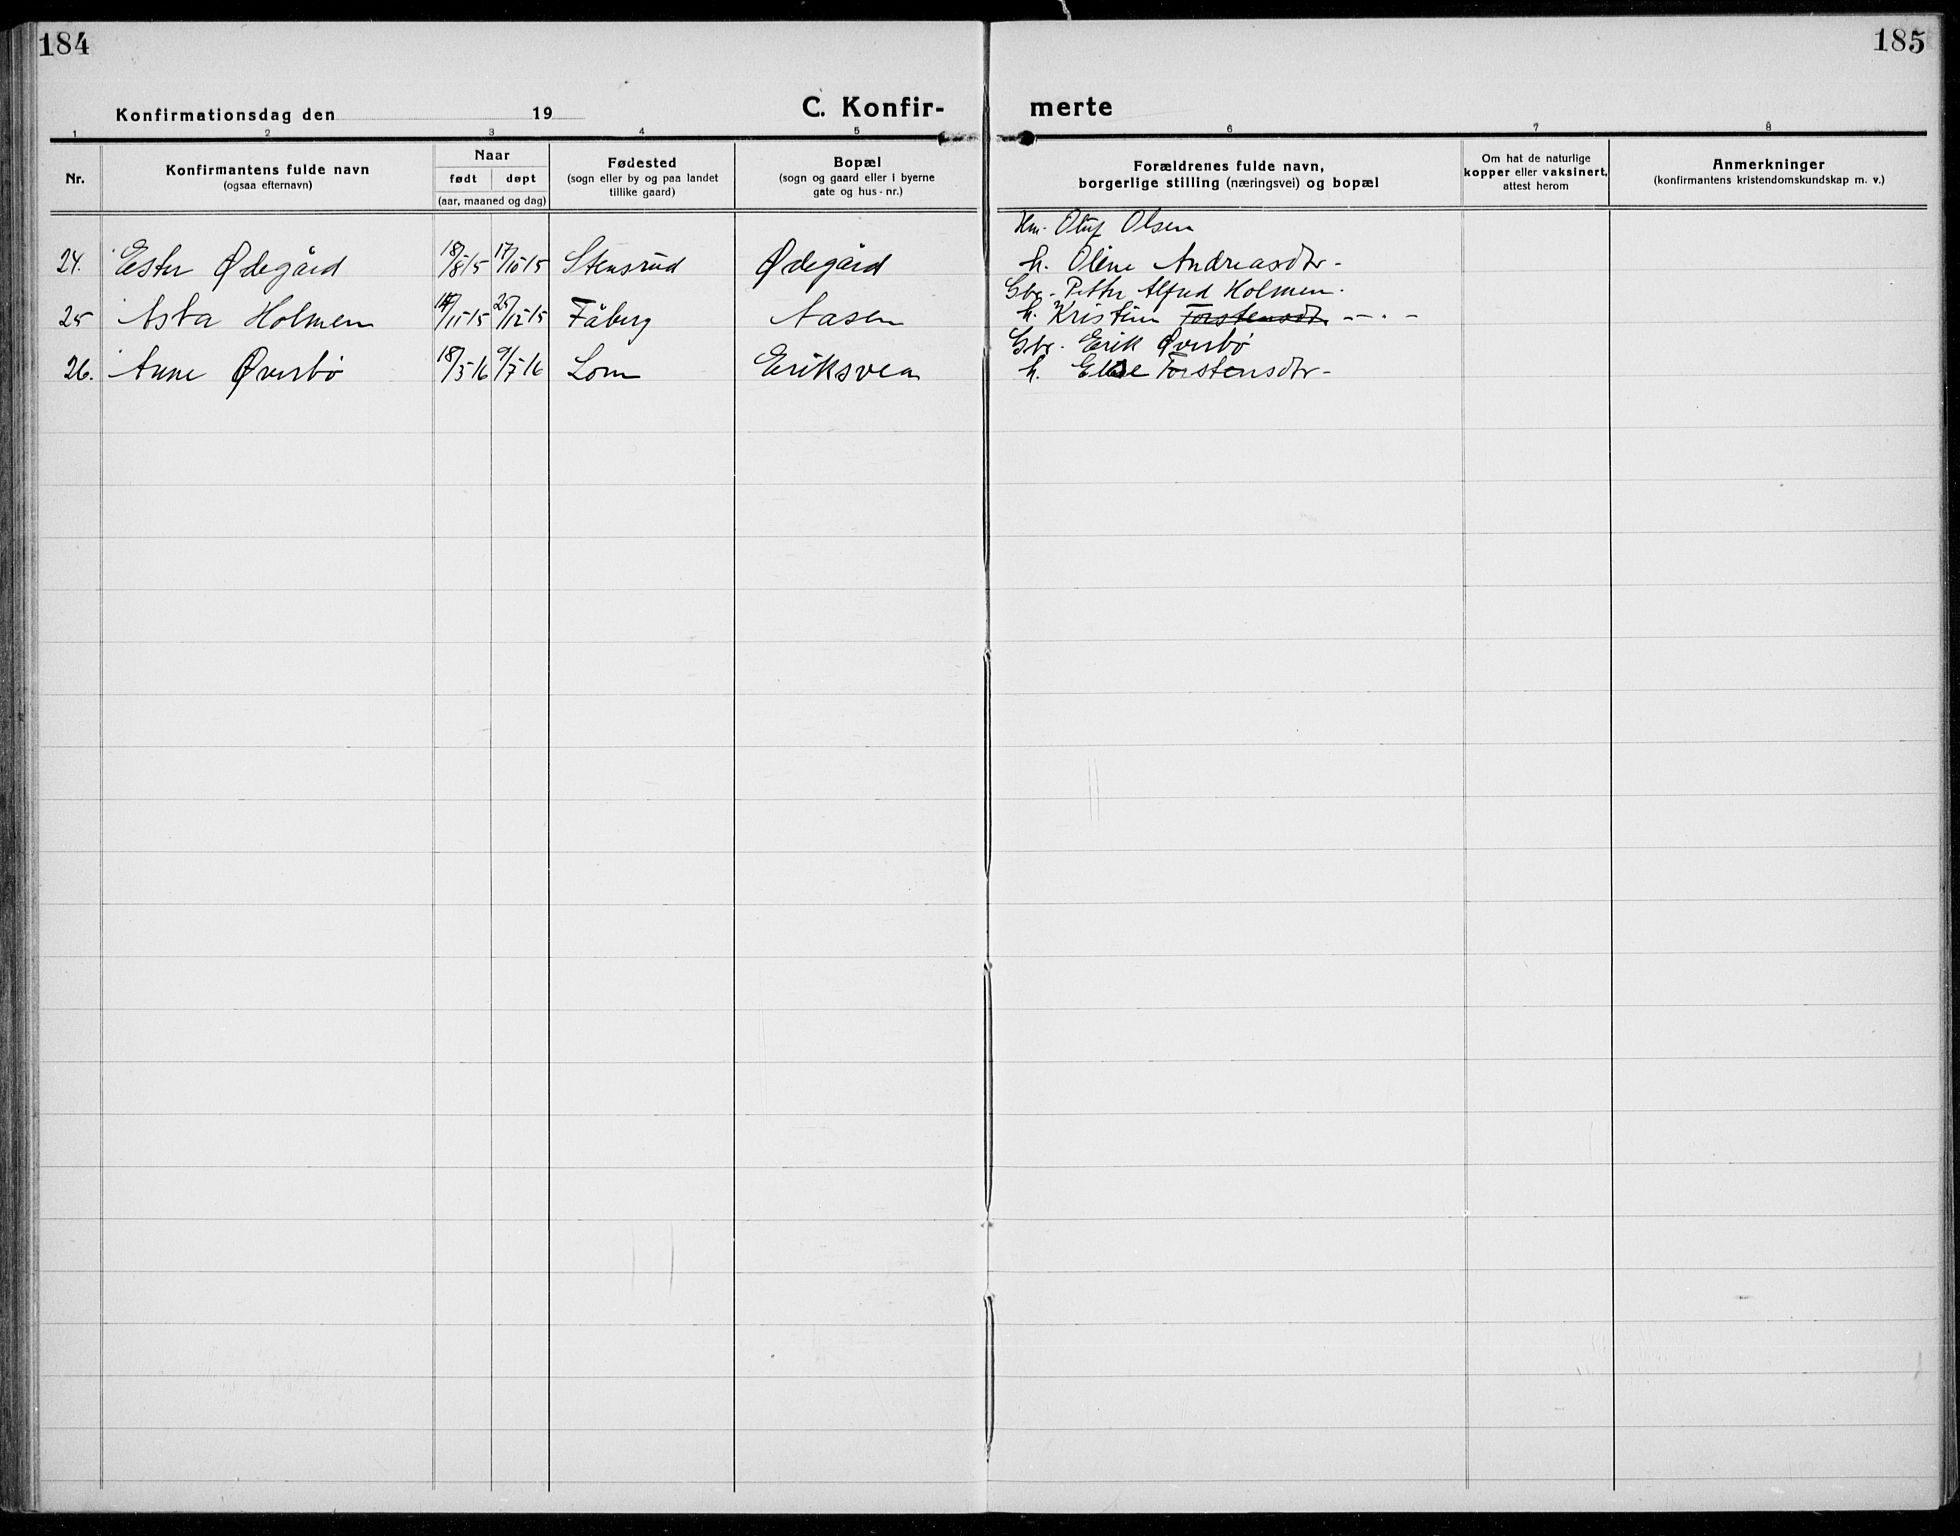 184
185
Konfirmationsdag den 19
C. Konfir-
merte
1 2 3 4 5 6 7 8
Nr.
Konfirmantens fulde navn
(ogsaa efternavn)
Naar
født døpt
(aar, maaned og dag)
Fødested
(sogn eller by og paa landet
tillike gaard)
Bopæl
(sogn og gaard eller i byerne
gate og hus-nr.)
Forældrenes fulde navn,
borgerlige stilling (næringsvei) og bopæl
Om hat de naturlige
kopper eller vaksinert,
attest herom
Anmerkninger
(konfirmantens kristendomskundskap m. v.)
Oluf Olsen
24. Ester Ødegård 18/8 15 17/10 15 Stensrud Ødegård h. Oline Andreasdtr -
Gbr. Petter Alfred Holmen.
25 Asta Holmen /11 15 25/12 15 Fåberg Aasen h. Kristine Torstensdtr - . -
Gbr. Erik Øverbø
26. Anne Øverbø 18/3 16 9/7 16 Lom Eriksvea h. Else Torstensdtr -